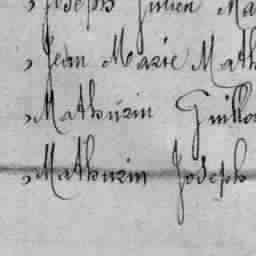 , Joseph Julien Ma
, Jean Marie Math
, Mathurin Guillo
, Mathurin Joseph